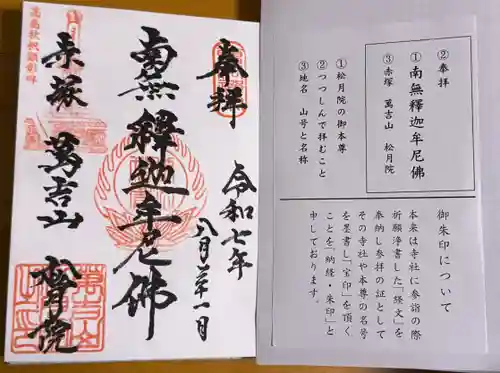 奉拝
令和七年
八月
南無釋迦牟尼佛
赤塚 萬吉山 松月院
高島秋帆顕彰碑
②奉拝
①南無釋迦牟尼佛
③赤塚 萬吉山 松月院
①松月院の御本尊
②つつしんで拝むこと
③地名 山号と名称
御朱印について
本来は寺社に参詣の際
祈願浄書した「経文」を
奉納し参拝の証として
その寺社や本尊の名号
を墨書し「宝印」を頂く
ことを「納経・朱印」と
申しております。